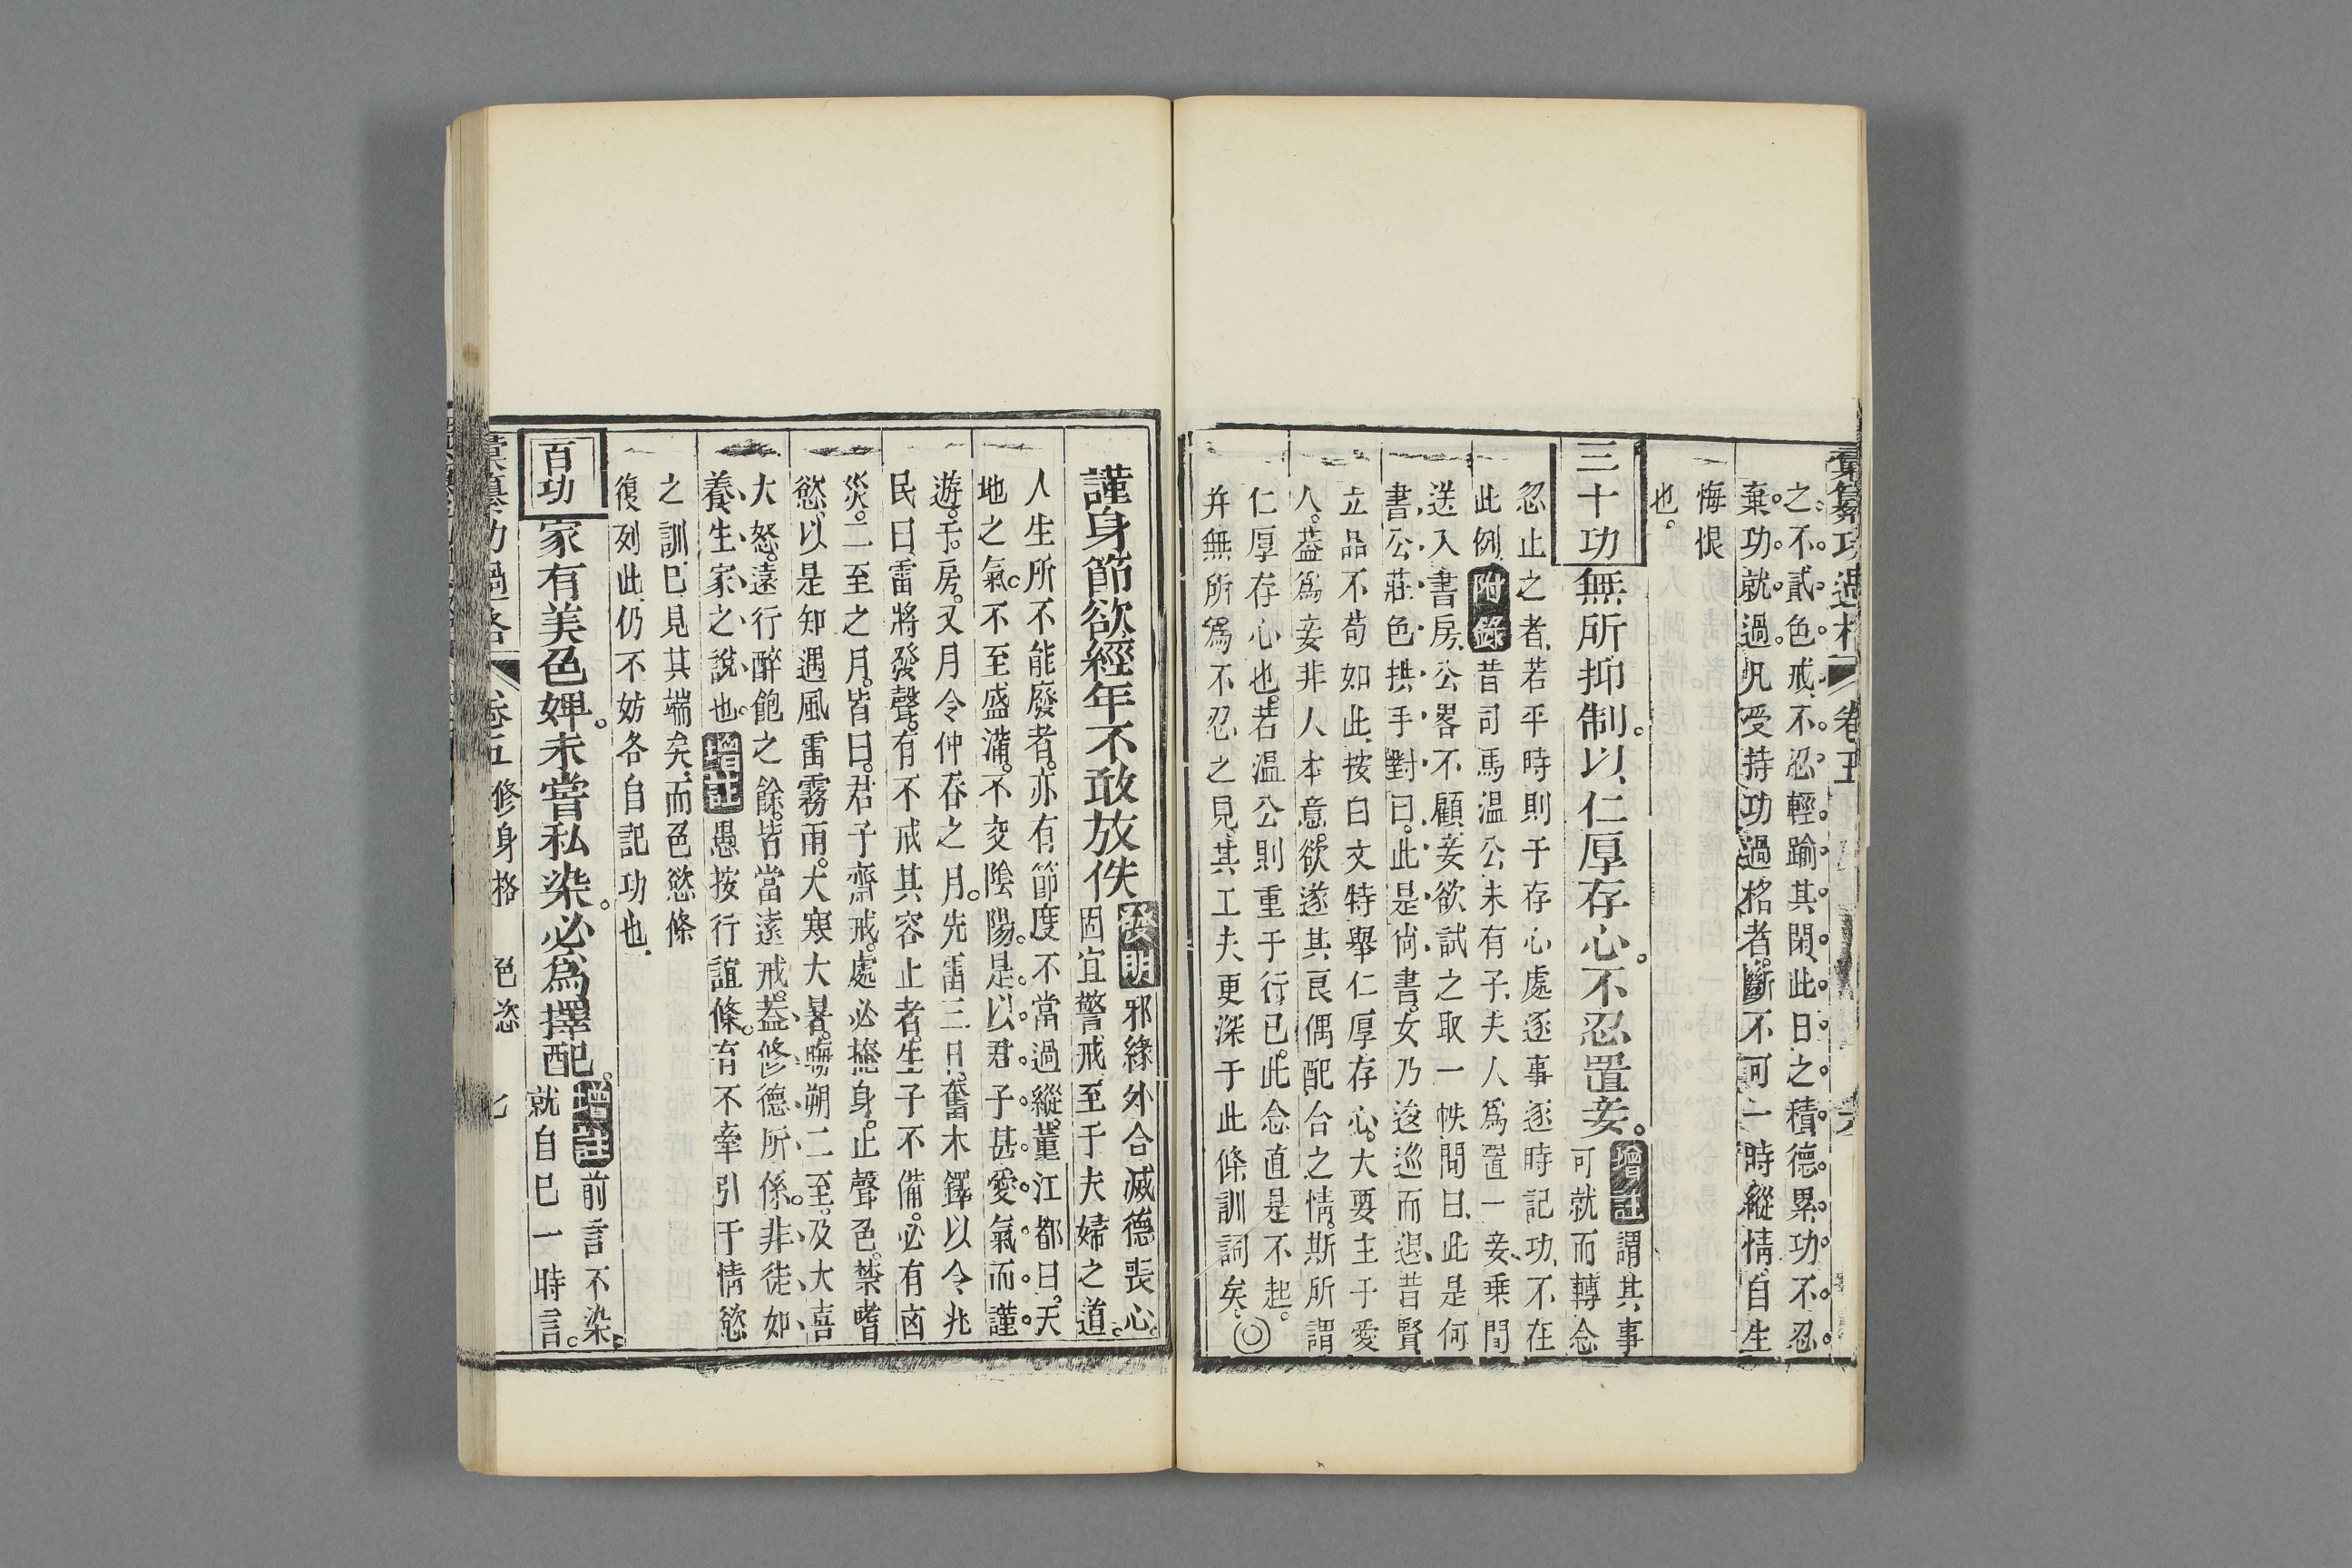 彙纂功過格 卷五 六
之不貳色戒不忍輕踰其閑此日之積德累功不忍
棄功就過凡受持功過格者斷不可一時縱情自生
悔恨
也
三十功 無所抑制以仁厚存心不忍置妾 增註 謂其事
可就而轉念
忽止之者若平時則于存心處逐事逐時記功不在
此例 附錄 昔司馬溫公未有子夫人爲置一妾乗間
送入書房公畧不顧妾欲試之取一帙問曰此是何
書公莊色拱手對曰此是尚書女乃逡巡而退昔賢
立品不苟如此按白文特舉仁厚存心大要主于愛
人葢爲妾非人本意欲遂其良偶配合之情斯所謂
仁厚存心也若温公則重于行已此念直是不起
并無所爲不忍之見其工夫更深于此條訓詞矣
謹身節欲經年不敢放佚 發明 邪緣外合滅德喪心
固宜警戒至于夫婦之道
人生所不能廢者亦有節度不當過縱董江都曰天
地之氣不至盛滿不交陰陽是以君子甚愛氣而謹
遊于房又月令仲春之月先雷三日奮木鐸以令兆
民曰雷將發聲有不戒其容止者生子不備必有凶
災二至之月皆曰君子齋戒處必掩身止聲色禁嗜
慾以是知遇風雷霧雨大寒大暑晦朔二至及大喜
大怒遠行醉飽之餘皆當遠戒葢修德所係非徒如
養生家之說也 增註 愚按行誼條有不牽引于情慾
之訓巳見其端矣而色慾條
復列此仍不妨各自記功也
百功 家有美色婢未嘗私染必爲擇配 增註 前言不染
就自巳一時言
彙纂功過格 卷五 修身格 色慾 七